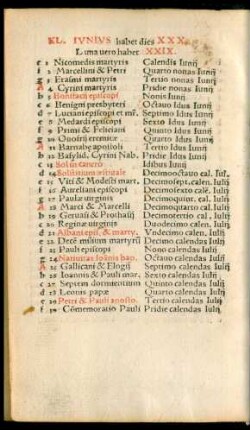 KL. IVNIVS habet dies XXX.
Luna uero habet XXIX.
e 1 Nicomedis martyris Calendis Iunij
f 2 Marcellini & Petri Quarto nonas Iunij
g 3 Erasmi martyris Tertio nonas Iunij
A 4 Cyrini martyris Pridie nonas Iunij
b 5 Bonifacij episcopi Nonis Iunij
c 6 Benigni presbyteri Octauo Idus Iunij
d 7 Luciani episcopi et mr̃. Septimo Idus Iunij
e 8 Medardi episcopi Sexto Idus Iunij
f 9 Primi & Feliciani Quinto Idus Iunij
g 10 Onofrij eremitæ Quarto Idus Iunij
A 11 Barnabę apostoli Tertio Idus Iunij
b 12 Basylid, Cyrini Nab. Pridie Idus Iunij
c 13 Sol in cancro Idibus Iunij
d 14 Solstitium æstiuale Decimooctauo cal. Iulij
e 15 Viti & Modesti mart. Decimosept. calen. Iulij
f 16 Aureliani episcopi Decimosexto calen. Iulij
g 17 Paulæ uirginis Decimoquint. calen. Iulij
A 18 Marci & Marcelli Decimoquarto cal. Iulij
b 19 Geruasij & Prothasij Decimotertio cal. Iulij
c 20 Reginæ uirginis Duodecimo calen. Iulij
d 21 Albani epi. & marty. Vndecimo calen. Iulij
e 22 Decē milium martyrū Decimo calendas Iulij
f 23 Pauli episcopi Nono calendas Iulij
g 24 Natiuitas Ioānis bap. Octauo calendas Iulij
A 25 Gallicani & Elogij Septimo calendas Iulij
b 26 Ioannis & Pauli mar. Sexto calendas Iulij
c 27 Septem dormientium Quinto calendas Iulij
d 28 Leonis papæ Quarto calendas Iulij
e 29 Petri & Pauli aposto. Tertio calendas Iulij
f 30 Cōmemoratio Pauli Pridie calendas Iulij